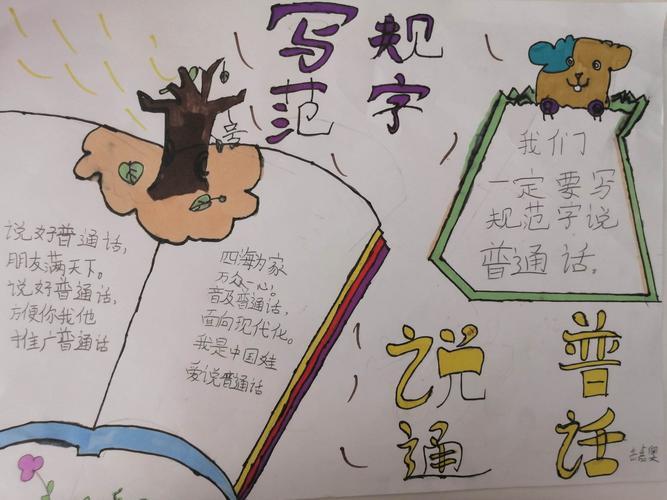 写规
范字
我们
一定要写
规范字说
普通话。
说好普通话,
朋友满天下。
说好普通话,
方便你我他
推广普通话
四海为家
万众一心。
普及普通话,
面向现代化。
我是中国娃
爱说普通话
说普
通话